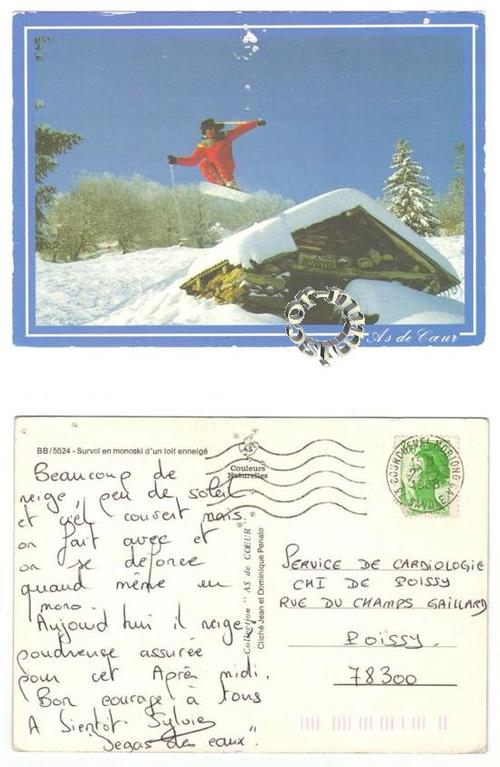 As de Cœur
BB/5524 - Survol en monoski d'un toit enneigé
AS
Couleurs
Naturelles
COURCHEVEL MORIOND
SAVOIE
Beaucoup de
neige, peu de soleil
et ciel couvert mais
on fait avec et
on se defonce
quand même en
mono.
Aujourd hui il neige
poudreuse assurée
pour cet Après midi.
Bon courage à tous
A Bientôt Sylvie
"Segas des eaux".
Collection "AS de CŒUR"
Cliché Jean et Dominique Penato
SERVICE DE CARDIOLOGIE
CHI DE POISSY
RUE DU CHAMPS GAILLARD
POISSY.
78300